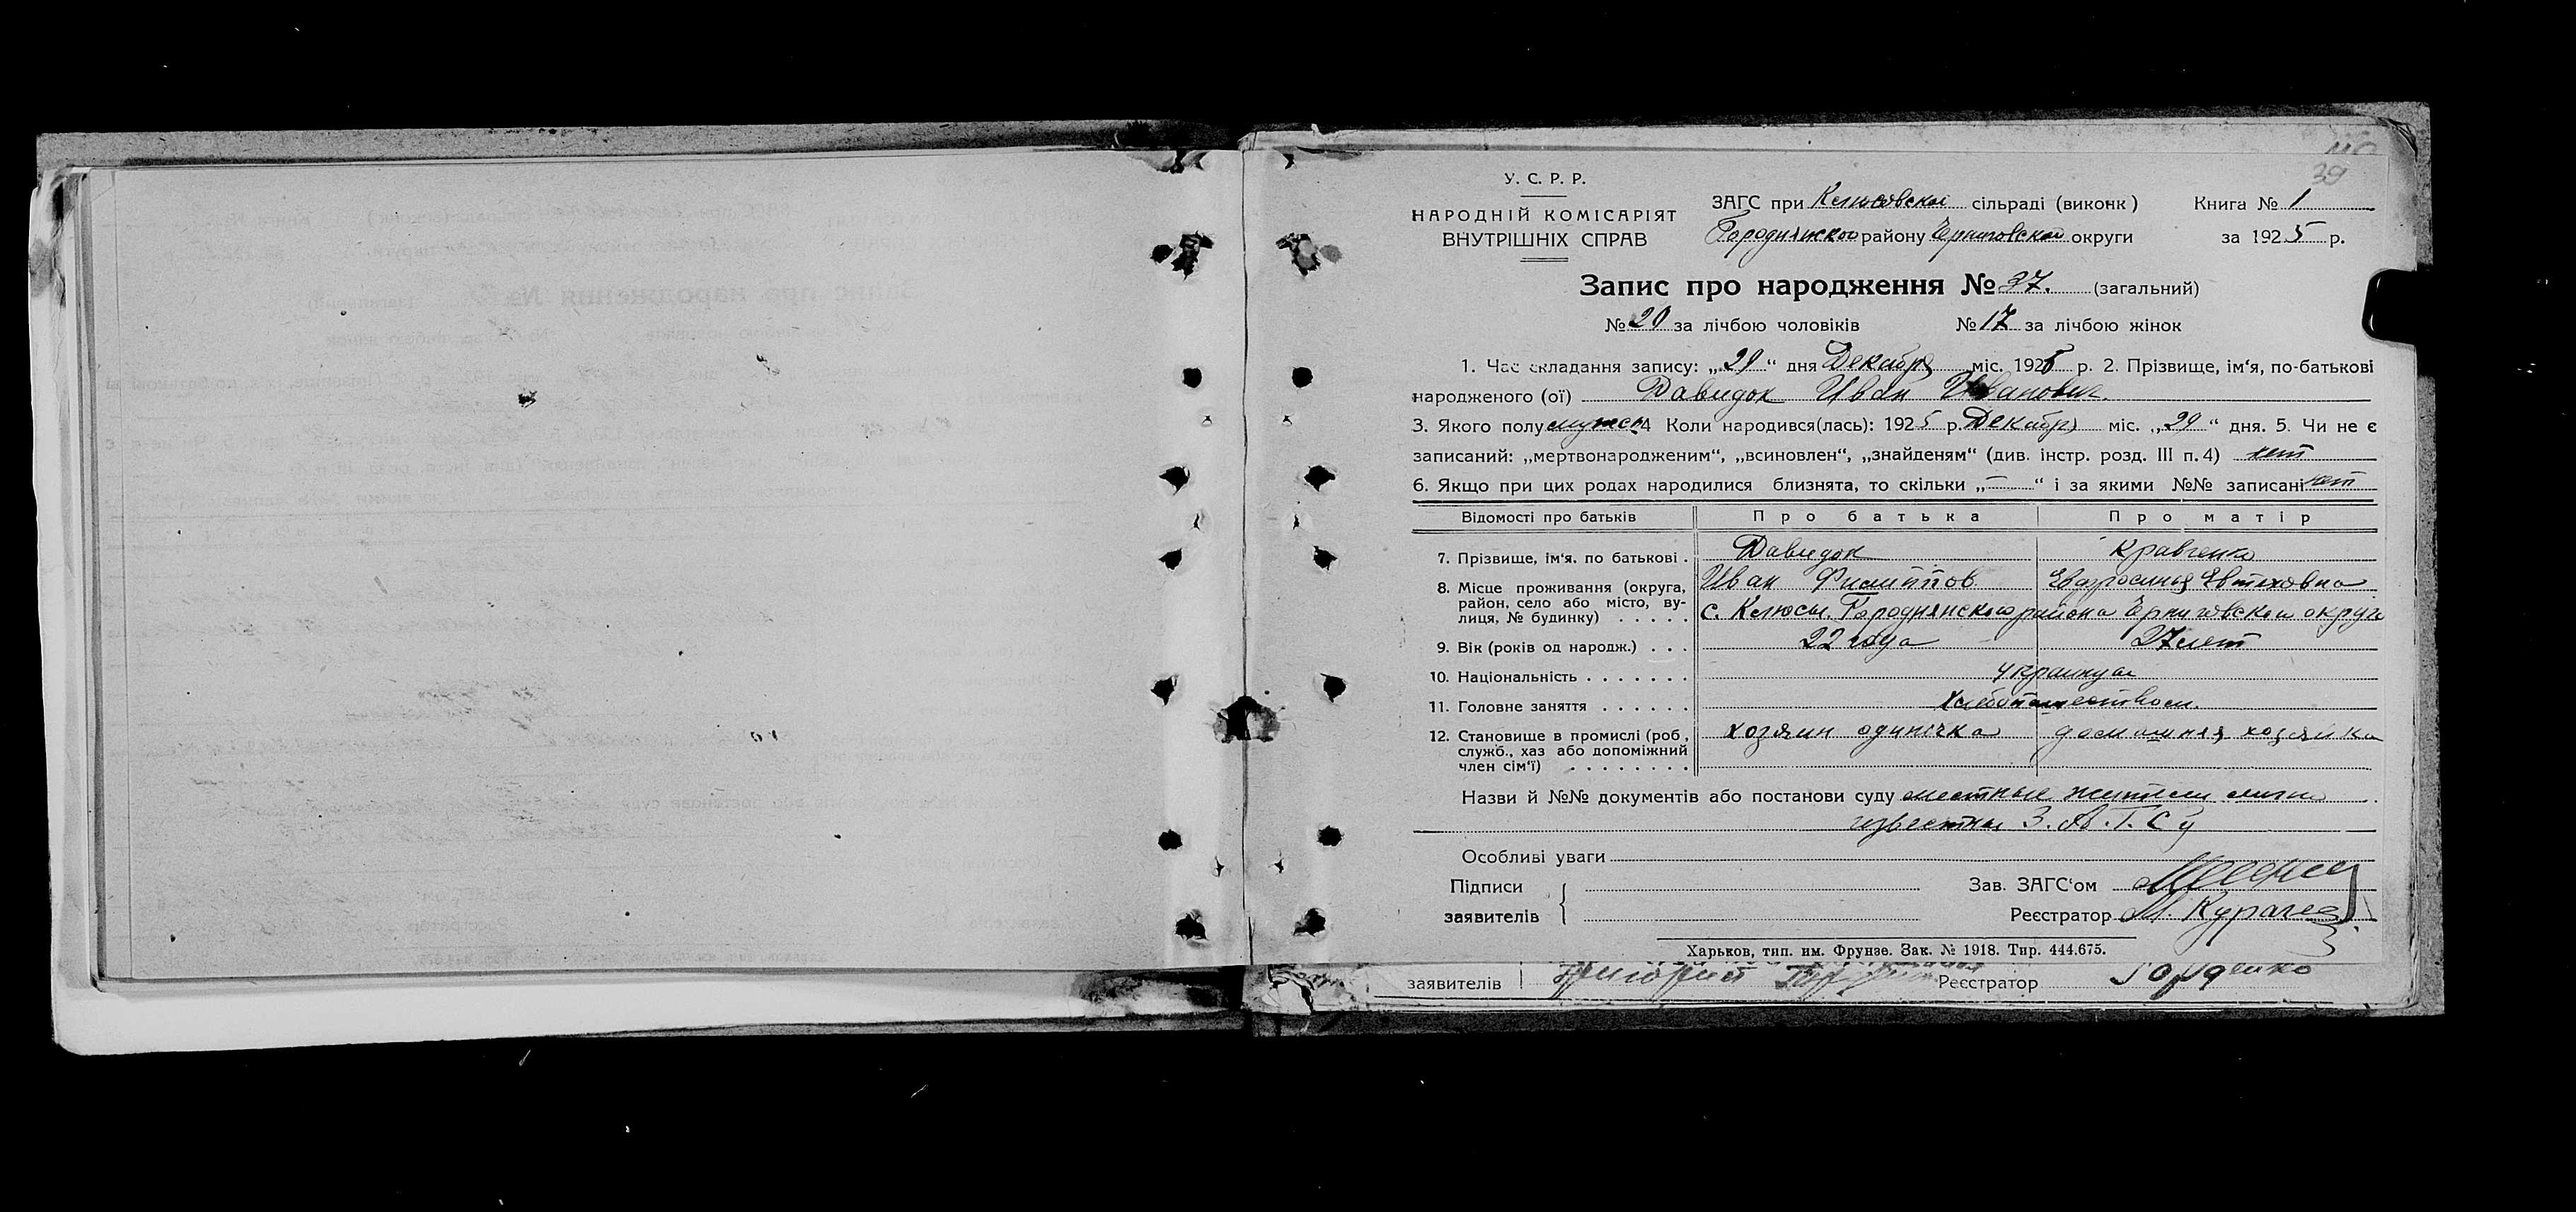 39
У. С. Р. Р.
НАРОДНІЙ КОМІСАРІЯТ
ВНУТРІШНІХ СПРАВ
ЗАГС при Клюсовской сільраді (виконк) Книга № 1
Городнянского району Черниговской округи за 1925 р.
Запис про народження № 37. (загальний)
№ 20 за лічбою чоловіків № 17 за лічбою жінок
1. Час складання запису: „29“ дня Декабря міс. 1925 р. 2. Прізвище, ім‘я, по-батькові
народженого (ої) Давидок Иван Иванович.
3. Якого полу мужск 4 Коли народився(лась): 1925 р. Декабря міс. „29“ дня. 5. Чи не є
записаний: „мертвонародженим“, „всиновлен“, „знайденям“ (див. інстр. розд. III п. 4) нет
6. Якщо при цих родах народилися близнята, то скільки „—“ і за якими №№ записані нет
Відомості про батьків Про батька Про матір
7. Прізвище, ім‘я. по батькові . Давидок Кравченко
8. Місце проживання (округа, Иван Филиппов Евфросинья Евтиховна
район, село або місто, ву-
лиця, № будинку) . . . . . с. Клюсы. Городнянского района Черниговской округи
9. Вік (років од народж.) . . . 22 года 27 лет
10. Національність . . . . . . . украинцы
11. Головне заняття . . . . . . хлебопашеством.
12. Становище в промислі (роб, хозяин одиночка домашняя хозяйка
служб., хаз або допоміжний
член сім‘ї) . . . . . . . .
Назви й №№ документів або постанови суду местные жители лично
известны З.А.Г.Су
Особливі уваги
Підписи Зав. ЗАГС‘ом
заявителів Реєстратор М.
Харьков, тип. им. Фрунзе. Зак. № 1918. Тир. 444.675.
заявителів Григорий Реєстратор Горденко